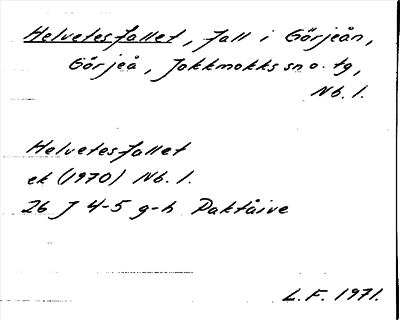 Helvetesfallet, fall i Görjeån,
Görjeå, Jokkmokks sn o. tg,
Nb. l.
Helvetesfallet
ek (1970) Nb. l.
26 J 4-5 g-h Paktåive
L.F. 1971.